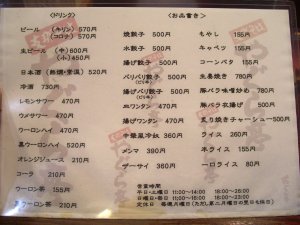 <ドリンク>
ビール (キリン) 570円
(コロナ) 570円
生ビール (中) 600円
(小) 450円
日本酒 (熱燗・常温) 520円
冷酒 730円
レモンサワー 470円
ウメサワー 470円
ウーロンハイ 470円
黒ウーロンハイ 520円
オレンジジュース 210円
コーラ 210円
ウーロン茶 155円
黒ウーロン茶 210円
<お品書き>
焼餃子 500円
水餃子 500円
揚げ餃子 500円
バリバリ餃子 500円
(ピリ辛)
揚げバリバリ 500円
(ピリ辛)
エワンタン 470円
揚げワンタン 470円
中華風冷奴 360円
メンマ 390円
ザーサイ 360円
もやし 155円
キャベツ 155円
コーンバタ 155円
生姜焼き 780円
豚バラ味噌炒め 780円
豚バラ唐揚げ 500円
炙り焼きチャーシュー 500円
ライス 260円
半ライス 155円
一口ライス 80円
営業時間
平日・土曜日 11:00〜14:00 18:00〜26:00
日曜日 11:00〜15:00 18:00〜23:00
定休日 毎週月曜日(ただし第二月曜日の翌日も休日)